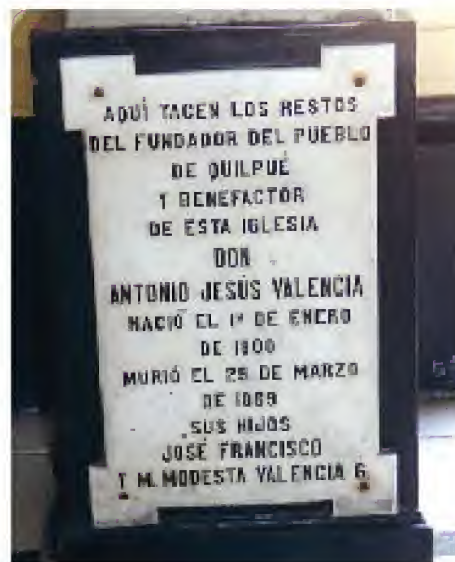 AQUÍ YACEN LOS RESTOS
DEL FUNDADOR DEL PUEBLO
DE QUILPUÉ
Y BENEFACTOR
DE ESTA IGLESIA
DON
ANTONIO JESÚS VALENCIA
NACIÓ EL 1º DE ENERO
DE 1800
MURIÓ EL 29 DE MARZO
DE 1869
SUS HIJOS
JOSÉ FRANCISCO
Y M. MODESTA VALENCIA G.